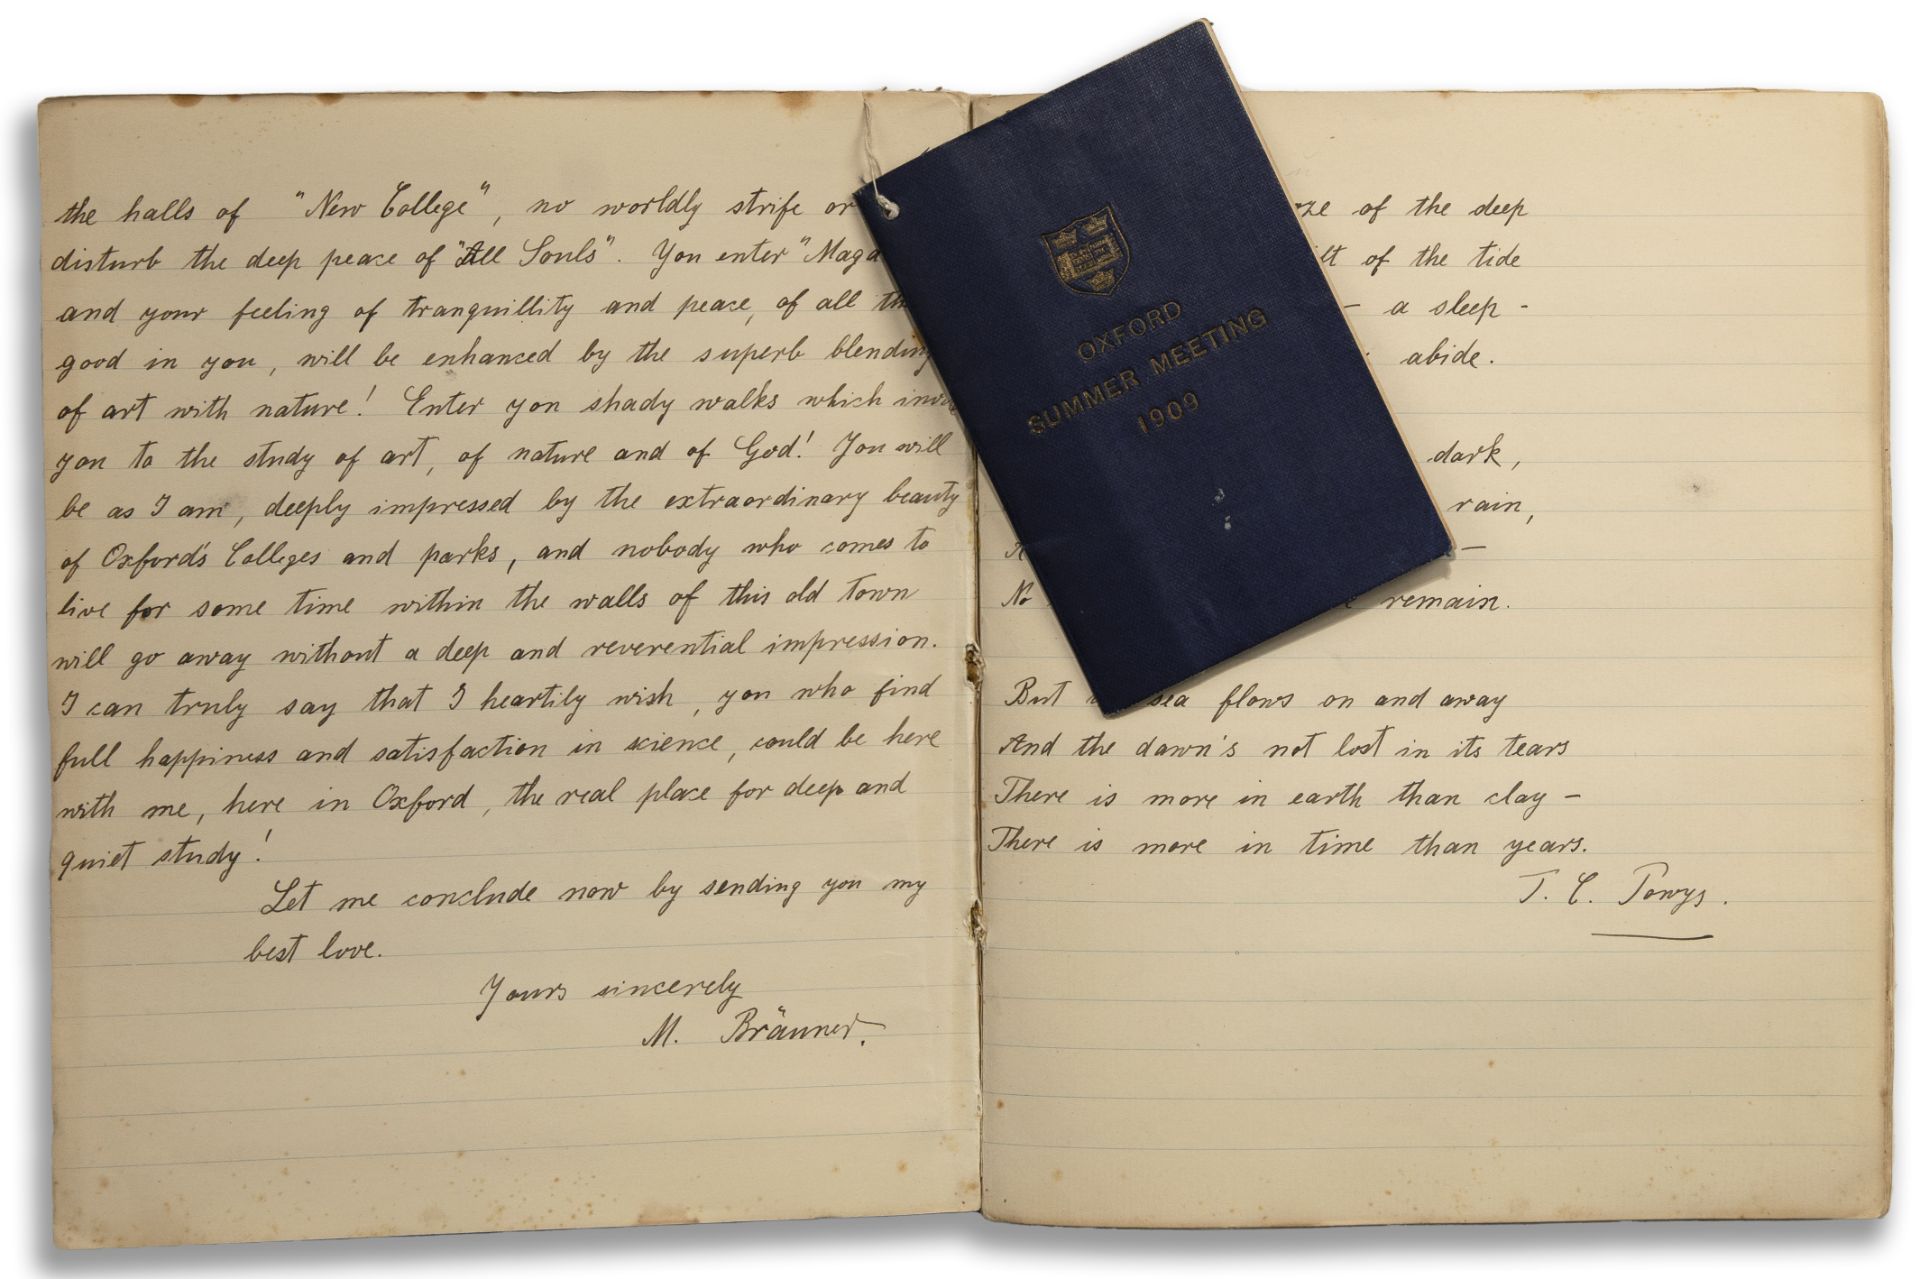 the halls of "New College", no worldly strife or
disturb the deep peace of "All Souls". You enter "Magd
and your feeling of tranquillity and peace, of all th
good in you, will be enhanced by the superb blending
of art with nature! Enter yon shady walks which
you to the study of art, of nature and of God! You will
be as I am, deeply impressed by the extraordinary beauty
of Oxford's Colleges and parks, and nobody who comes to
live for some time within the walls of this old town
will go away without a deep and reverential impression.
I can truly say that I heartily wish, you who find
full happiness and satisfaction in science, could be here
with me, here in Oxford, the real place for deep and
quiet study!
Let me conclude now by sending you my
best love.
Yours sincerely
M. Bräuner.
OXFORD
SUMMER MEETING
1909
of the deep
of the tide
– a sleep –
abide.
dark,
rain,
–
No remain.
But sea flows on and away
And the dawn's not lost in its tears
There is more in earth than clay –
There is more in time than years.
T. C. Powys.